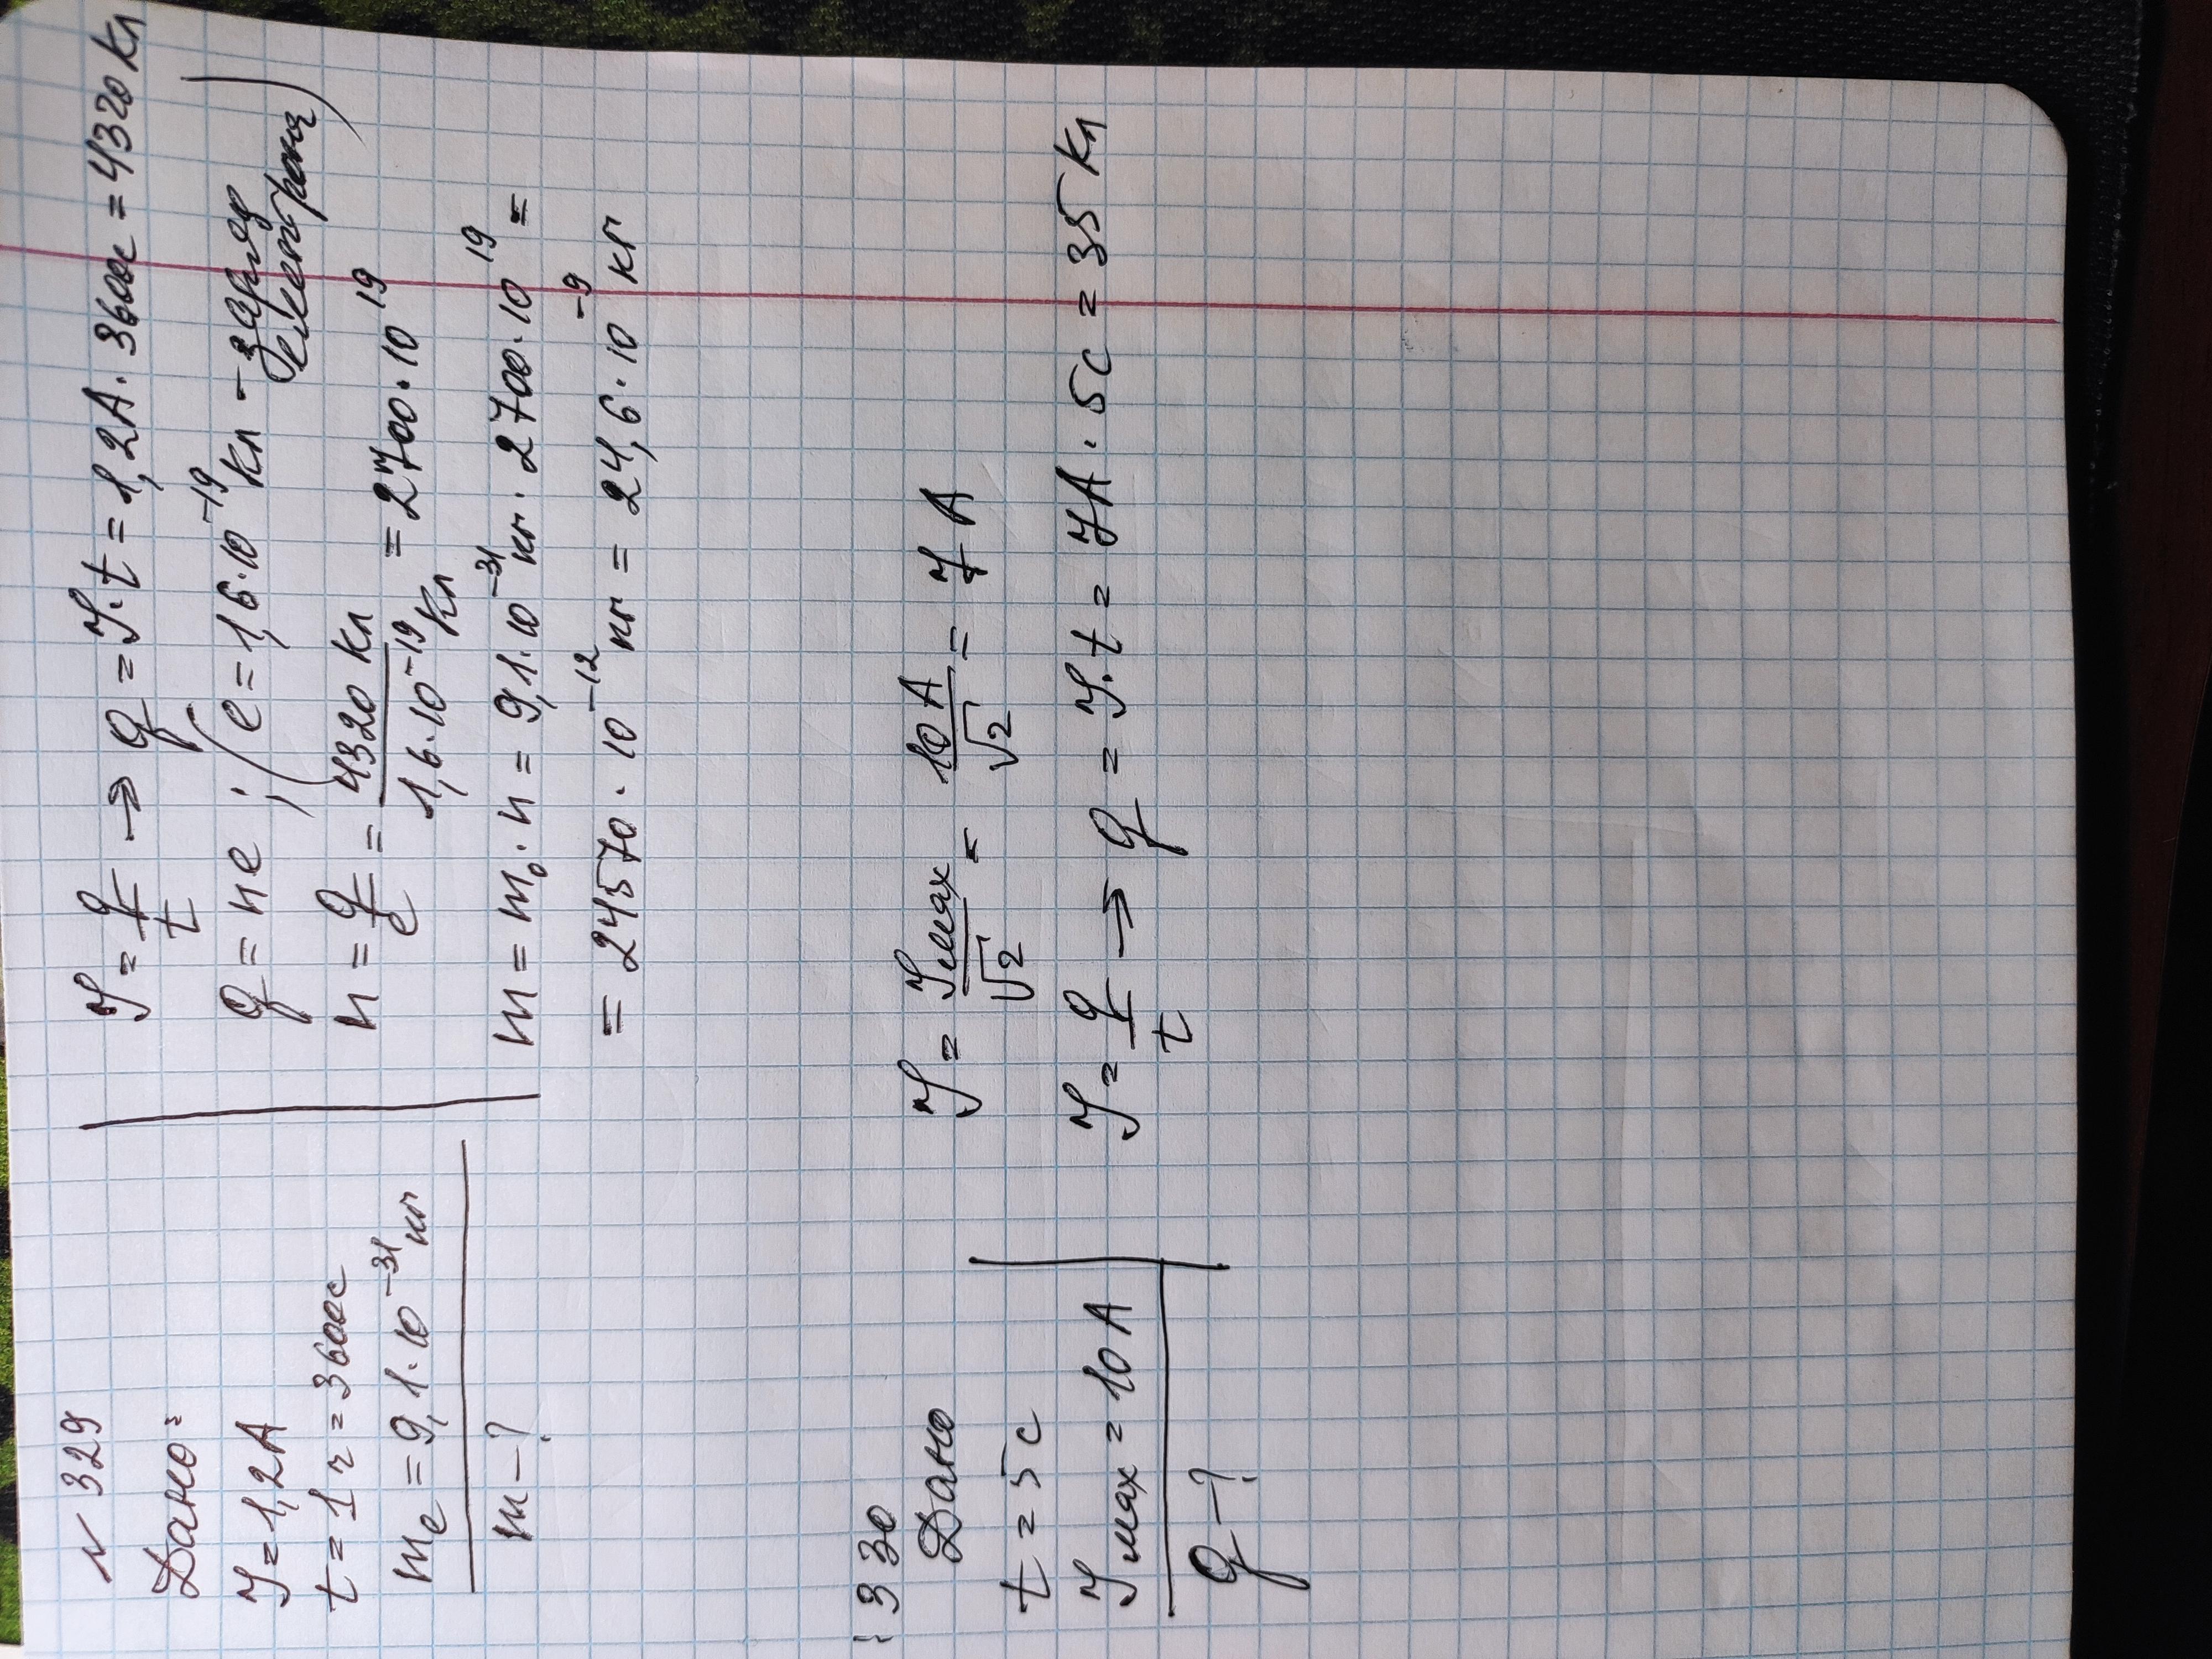 N 329
Дано:
I = 1,2А
t = 1 г = 3600с
mₑ = 9,1·10⁻³¹ кг
m - ?
I = q/t → q = I·t = 1,2А · 3600с = 4320 Кл
q = ne ; (e = 1,6·10⁻¹⁹ Кл - заряд
електрона)
n = q/e = 4320 Кл / 1,6·10⁻¹⁹ Кл = 2700·10¹⁹
m = m₀·n = 9,1·10⁻³¹ кг · 2700·10¹⁹ =
= 24570·10⁻¹² кг = 24,6·10⁻⁹ кг
330
Дано
t = 5 с
I max = 10 А
q - ?
I = I max/√2 = 10 А/√2 = 7 А
I = q/t → q = I·t = 7А · 5с = 35 Кл